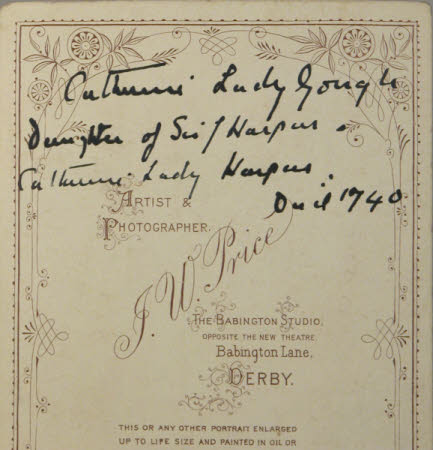 Catherine Lady Gough
Daughter of Sir J Harpur &
Catherine Lady Harpur.
Died 1740
ARTIST &
PHOTOGRAPHER.
J. W. Price
THE BABINGTON STUDIO,
OPPOSITE THE NEW THEATRE,
Babington Lane,
DERBY.
THIS OR ANY OTHER PORTRAIT ENLARGED
UP TO LIFE SIZE AND PAINTED IN OIL OR